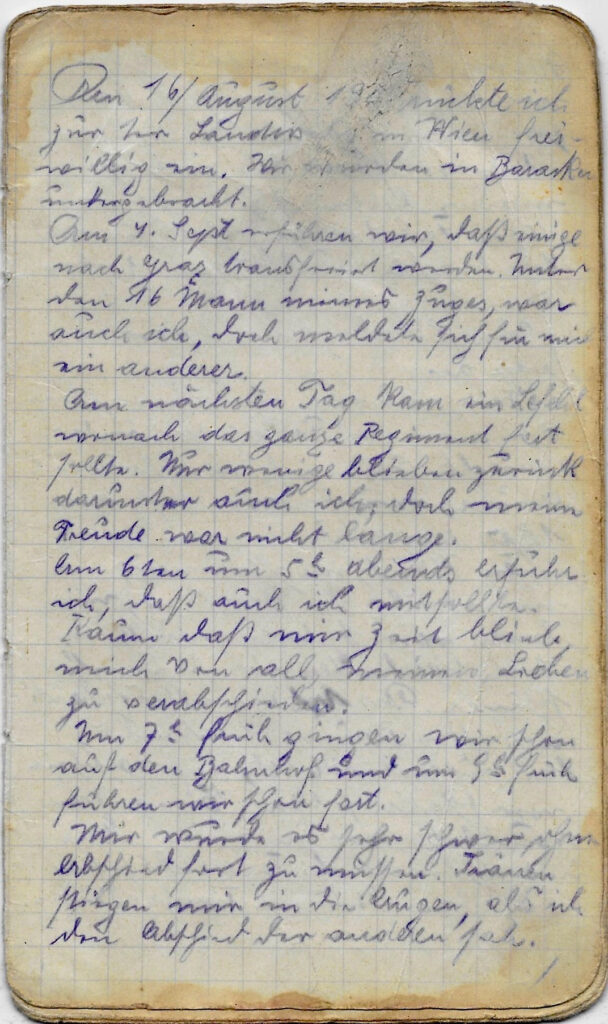 Den 16/ August 19 rückte ich
zur k.k. Landw in Wien frei-
willig ein. Wir wurden in Baracken
untergebracht.
Am 4. Sept erfuhren wir, daß einige
nach Graz transferiert werden. Unter
den 16 Mann meines Zuges, war
auch ich, doch meldete sich für mich
ein anderer.
Am nächsten Tag kam ein Befehl
wonach das ganze Regiment fort
sollte. Nur wenige blieben zurück
darunter auch ich, doch meine
Freude war nicht lange.
Am 6ten um 5h abends erfuhr
ich, daß auch ich mitsollte.
Kaum daß mir Zeit blieb,
mich von all meinen Lieben
zu verabschieden.
Um 7h früh gingen wir schon
auf den Bahnhof und um 9h früh
fuhren wir schon fort.
Mir wurde es sehr schwer ohne
Abschied fort zu müssen. Tränen
stiegen mir in die Augen, als ich
den Abschied der anderen sah.